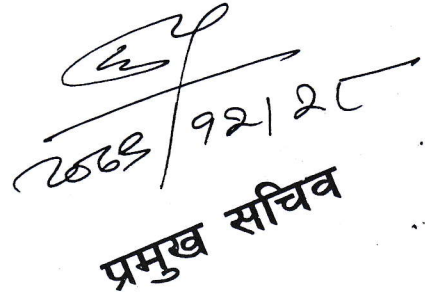 २०७९/१२/२८
प्रमुख सचिव